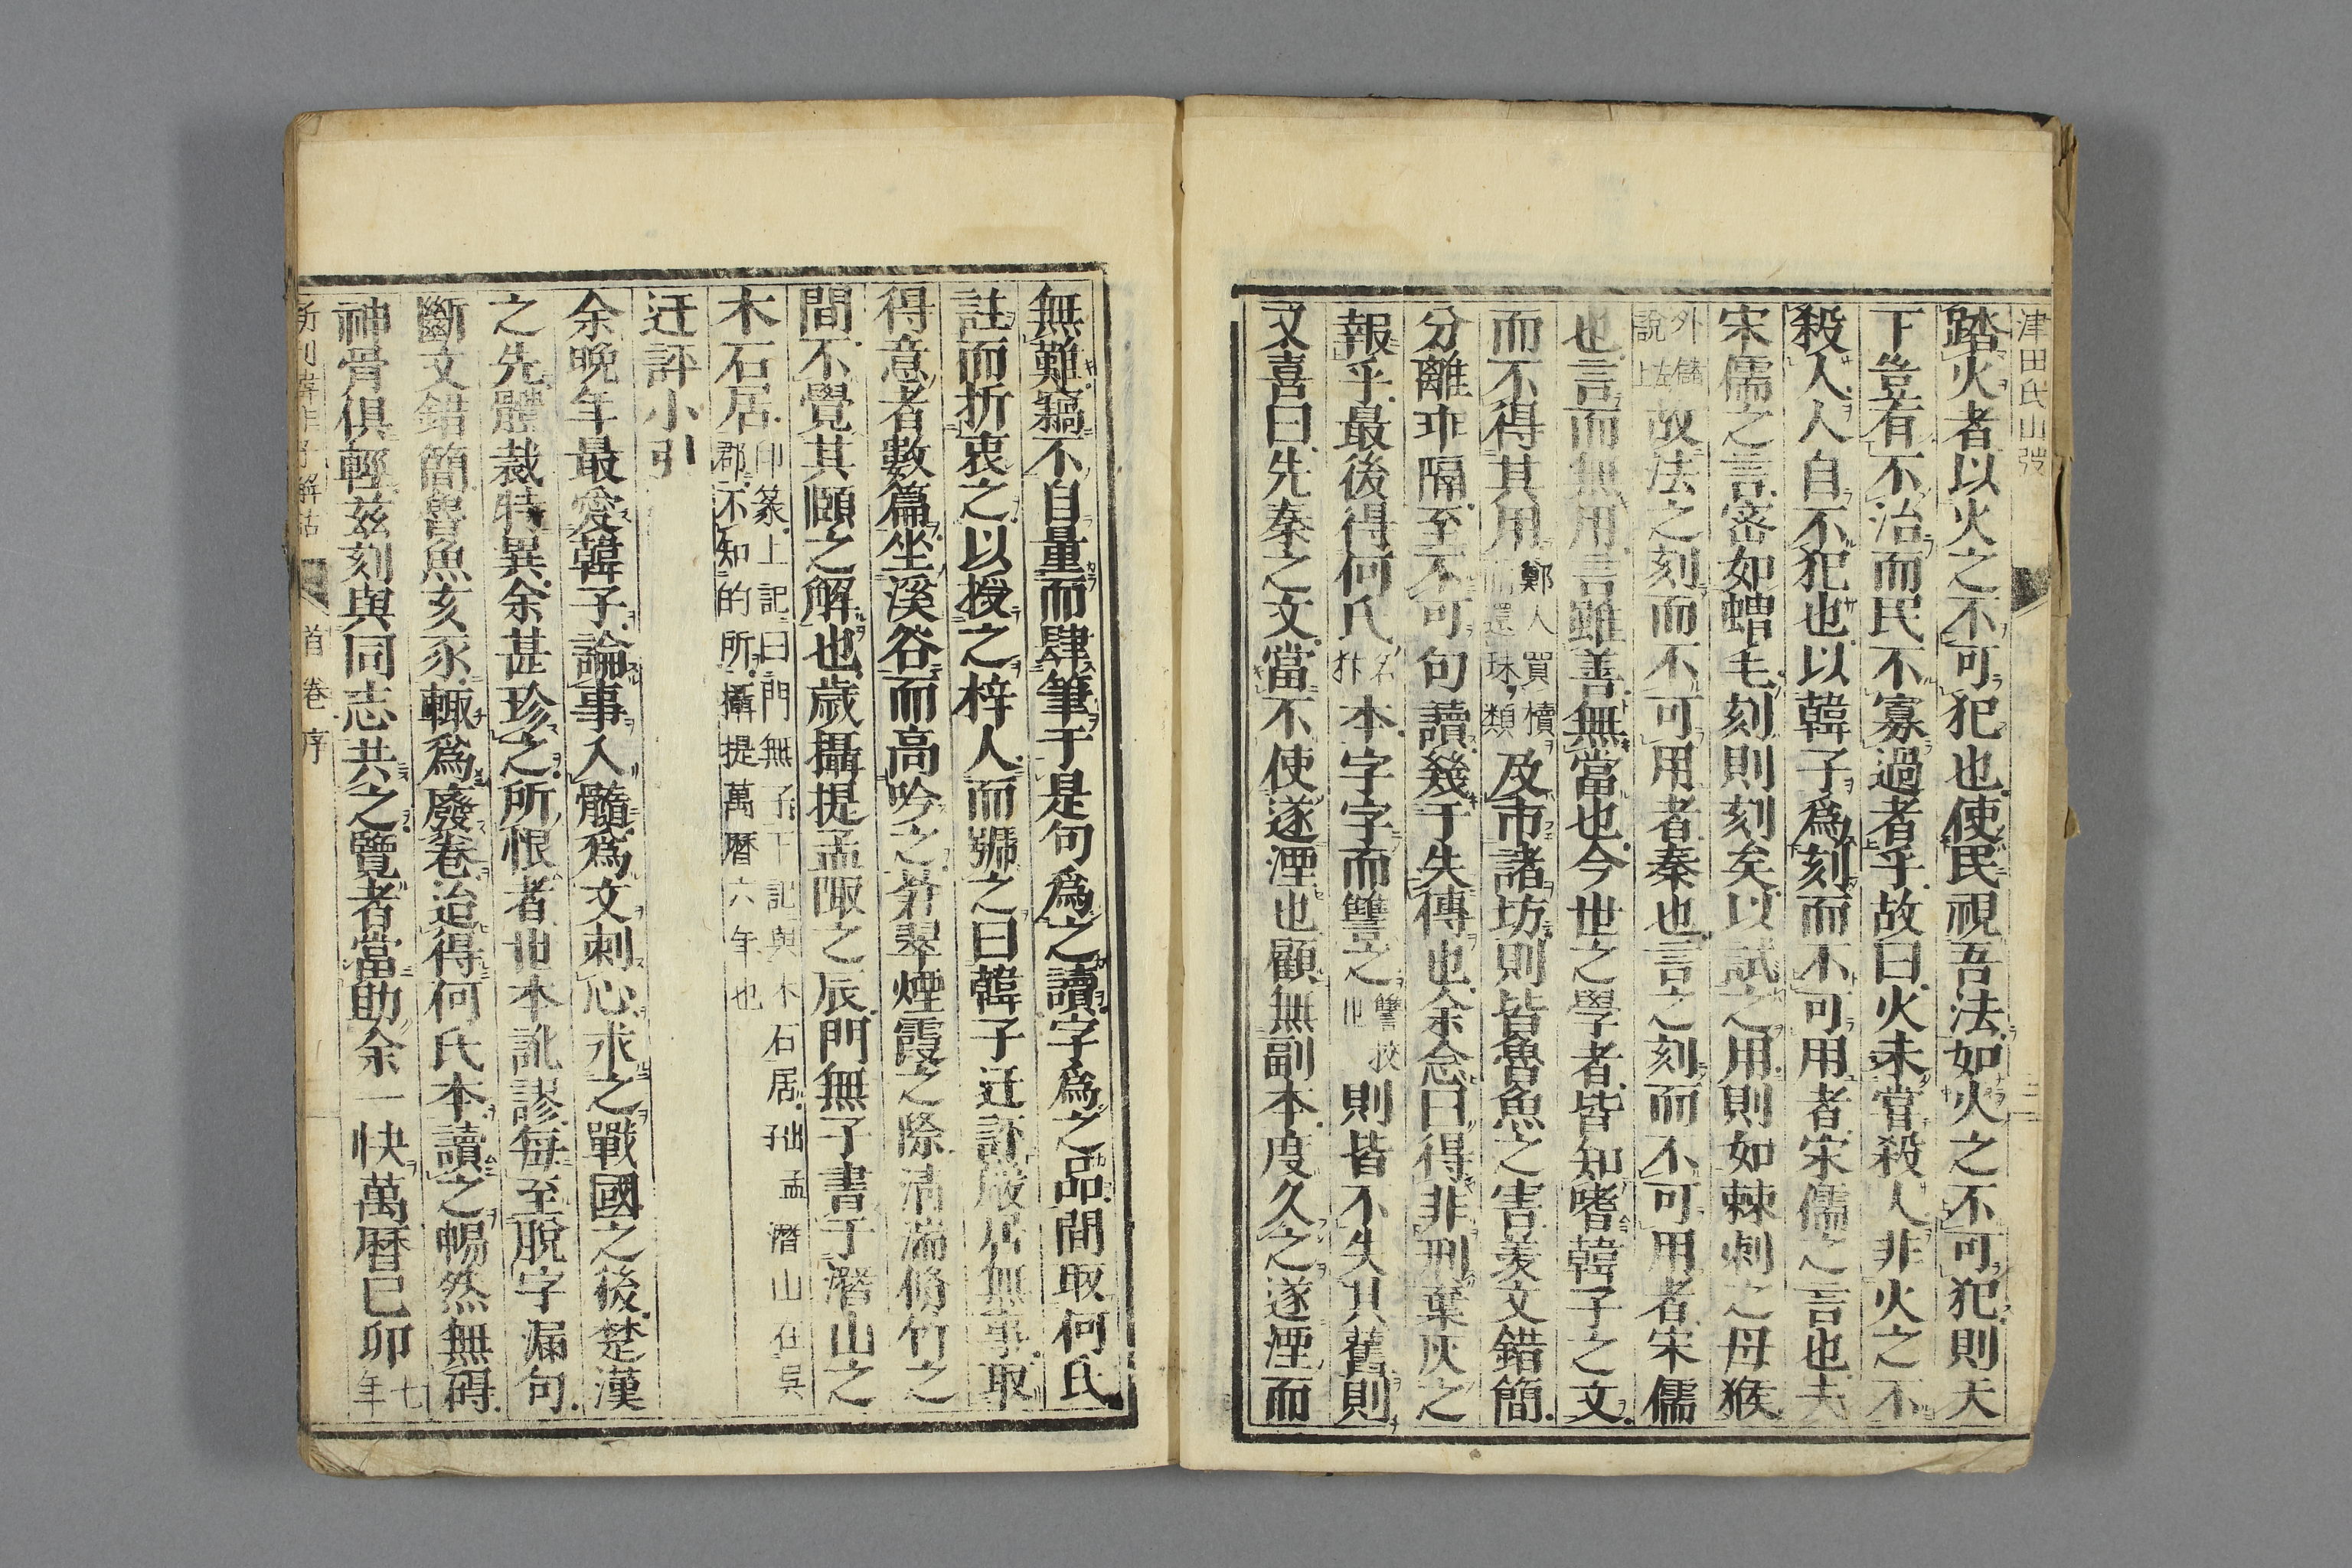 津田氏山發
二
踏火者以火之不可犯也使民視吾法如火之不可犯則天
下豈有不治而民不寡過者乎故曰火未嘗殺人非火之不
殺人人自不犯也以韓子爲刻而不可用者宋儒之言也夫
宋儒之言密如蝟毛刻則刻矣以試之用則如棘刺之母猴
外儲說左上故法之刻而不可用者秦也言之刻而不可用者宋儒
也言而無用言雖善無當也今世之學者皆知嗜韓子之文
而不得其用鄭人買櫝而還珠類及市諸坊則皆魯魚之害羨文錯簡
分離乖隔至不可句讀幾于失傳也余念曰得非刑棄灰之
報乎最後得何氏名犿本字字而讐之讐挍也則皆不失其舊則
又喜曰先秦之文當不使遂湮也顧無副本度久之遂湮而
無難竊不自量而肆筆于是句爲之讀字爲之品間取何氏
註而折衷之以授之梓人而號之曰韓子迂評嚴居無事取
得意者數篇坐溪谷而高吟之蒼翠煙霞之際清湍脩竹之
間不覺其頤之解也歲攝提孟陬之辰門無子書于潛山之
木石居印篆上記曰門無子下記與木石居拙孟潛山在吳
郡不知的所攝提萬曆六年也
迂評小引
余晩年最愛韓子論事入髓爲文刺心求之戰國之後楚漢
之先體裁特異余甚珍之所恨者世本訛謬每至脫字漏句
斷文錯簡魯魚亥豕輙爲廢卷迨得何氏本讀之暢然無碍
神骨俱輕茲刻與同志共之覽者當助余一快萬曆巳卯七年
新刊韓非子解詁
首卷序